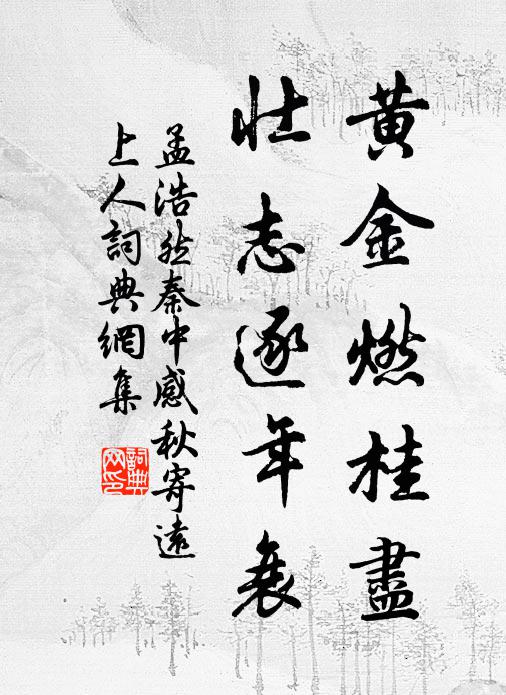 黃金燃桂盡
壯志逐年衰
孟浩然秦中感秋寄遠
上人詞典網集
詞典網印